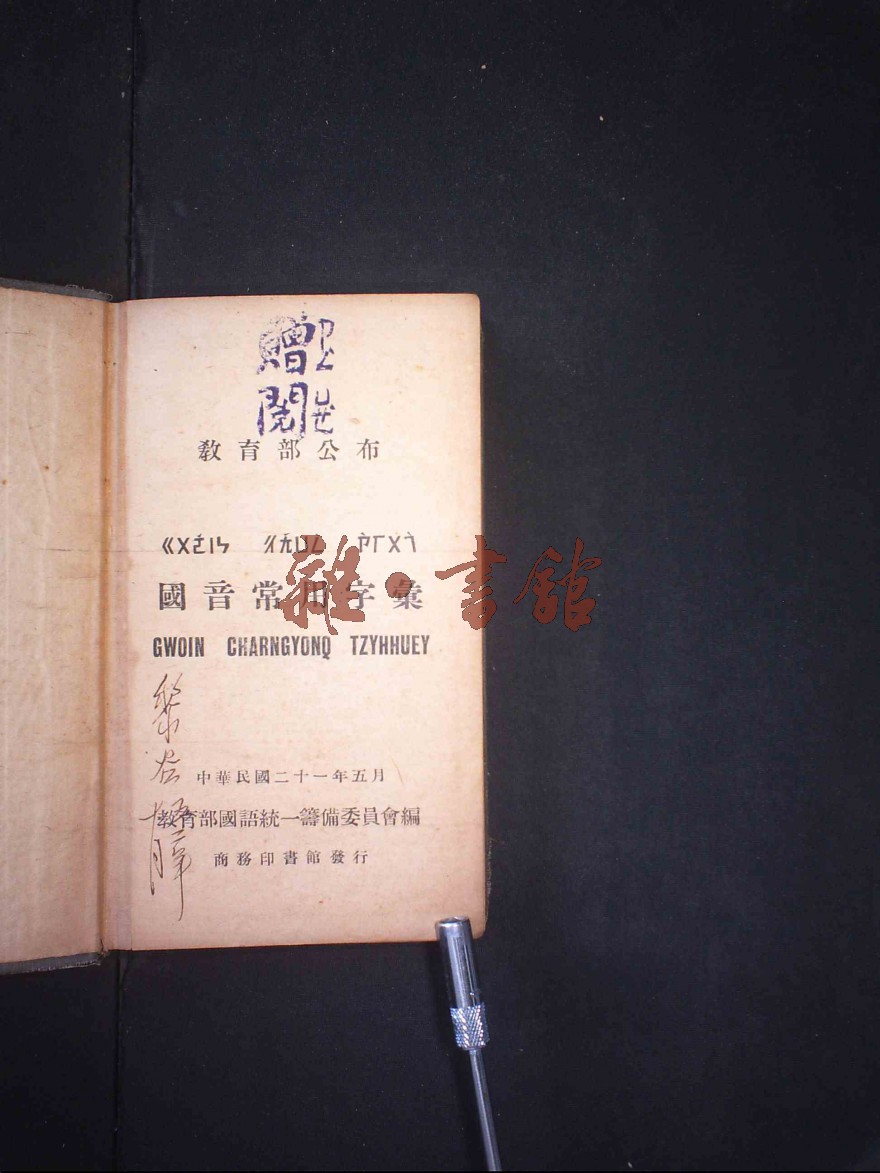 贈閱
教育部公布
國音常用字彙
GWOIN CHARNGYONQ TZYHHUEY
中華民國二十一年五月
教育部國語統一籌備委員會編
商務印書館發行
雜·書館